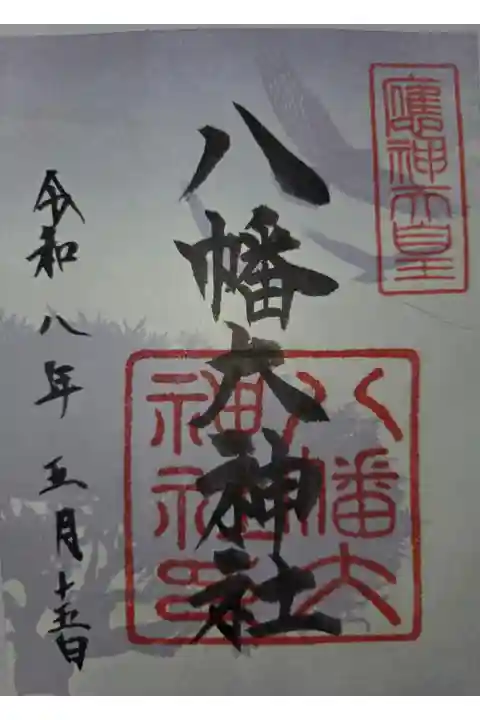 應神天皇
八幡大神社
八幡大神社印
令和八年五月十五日